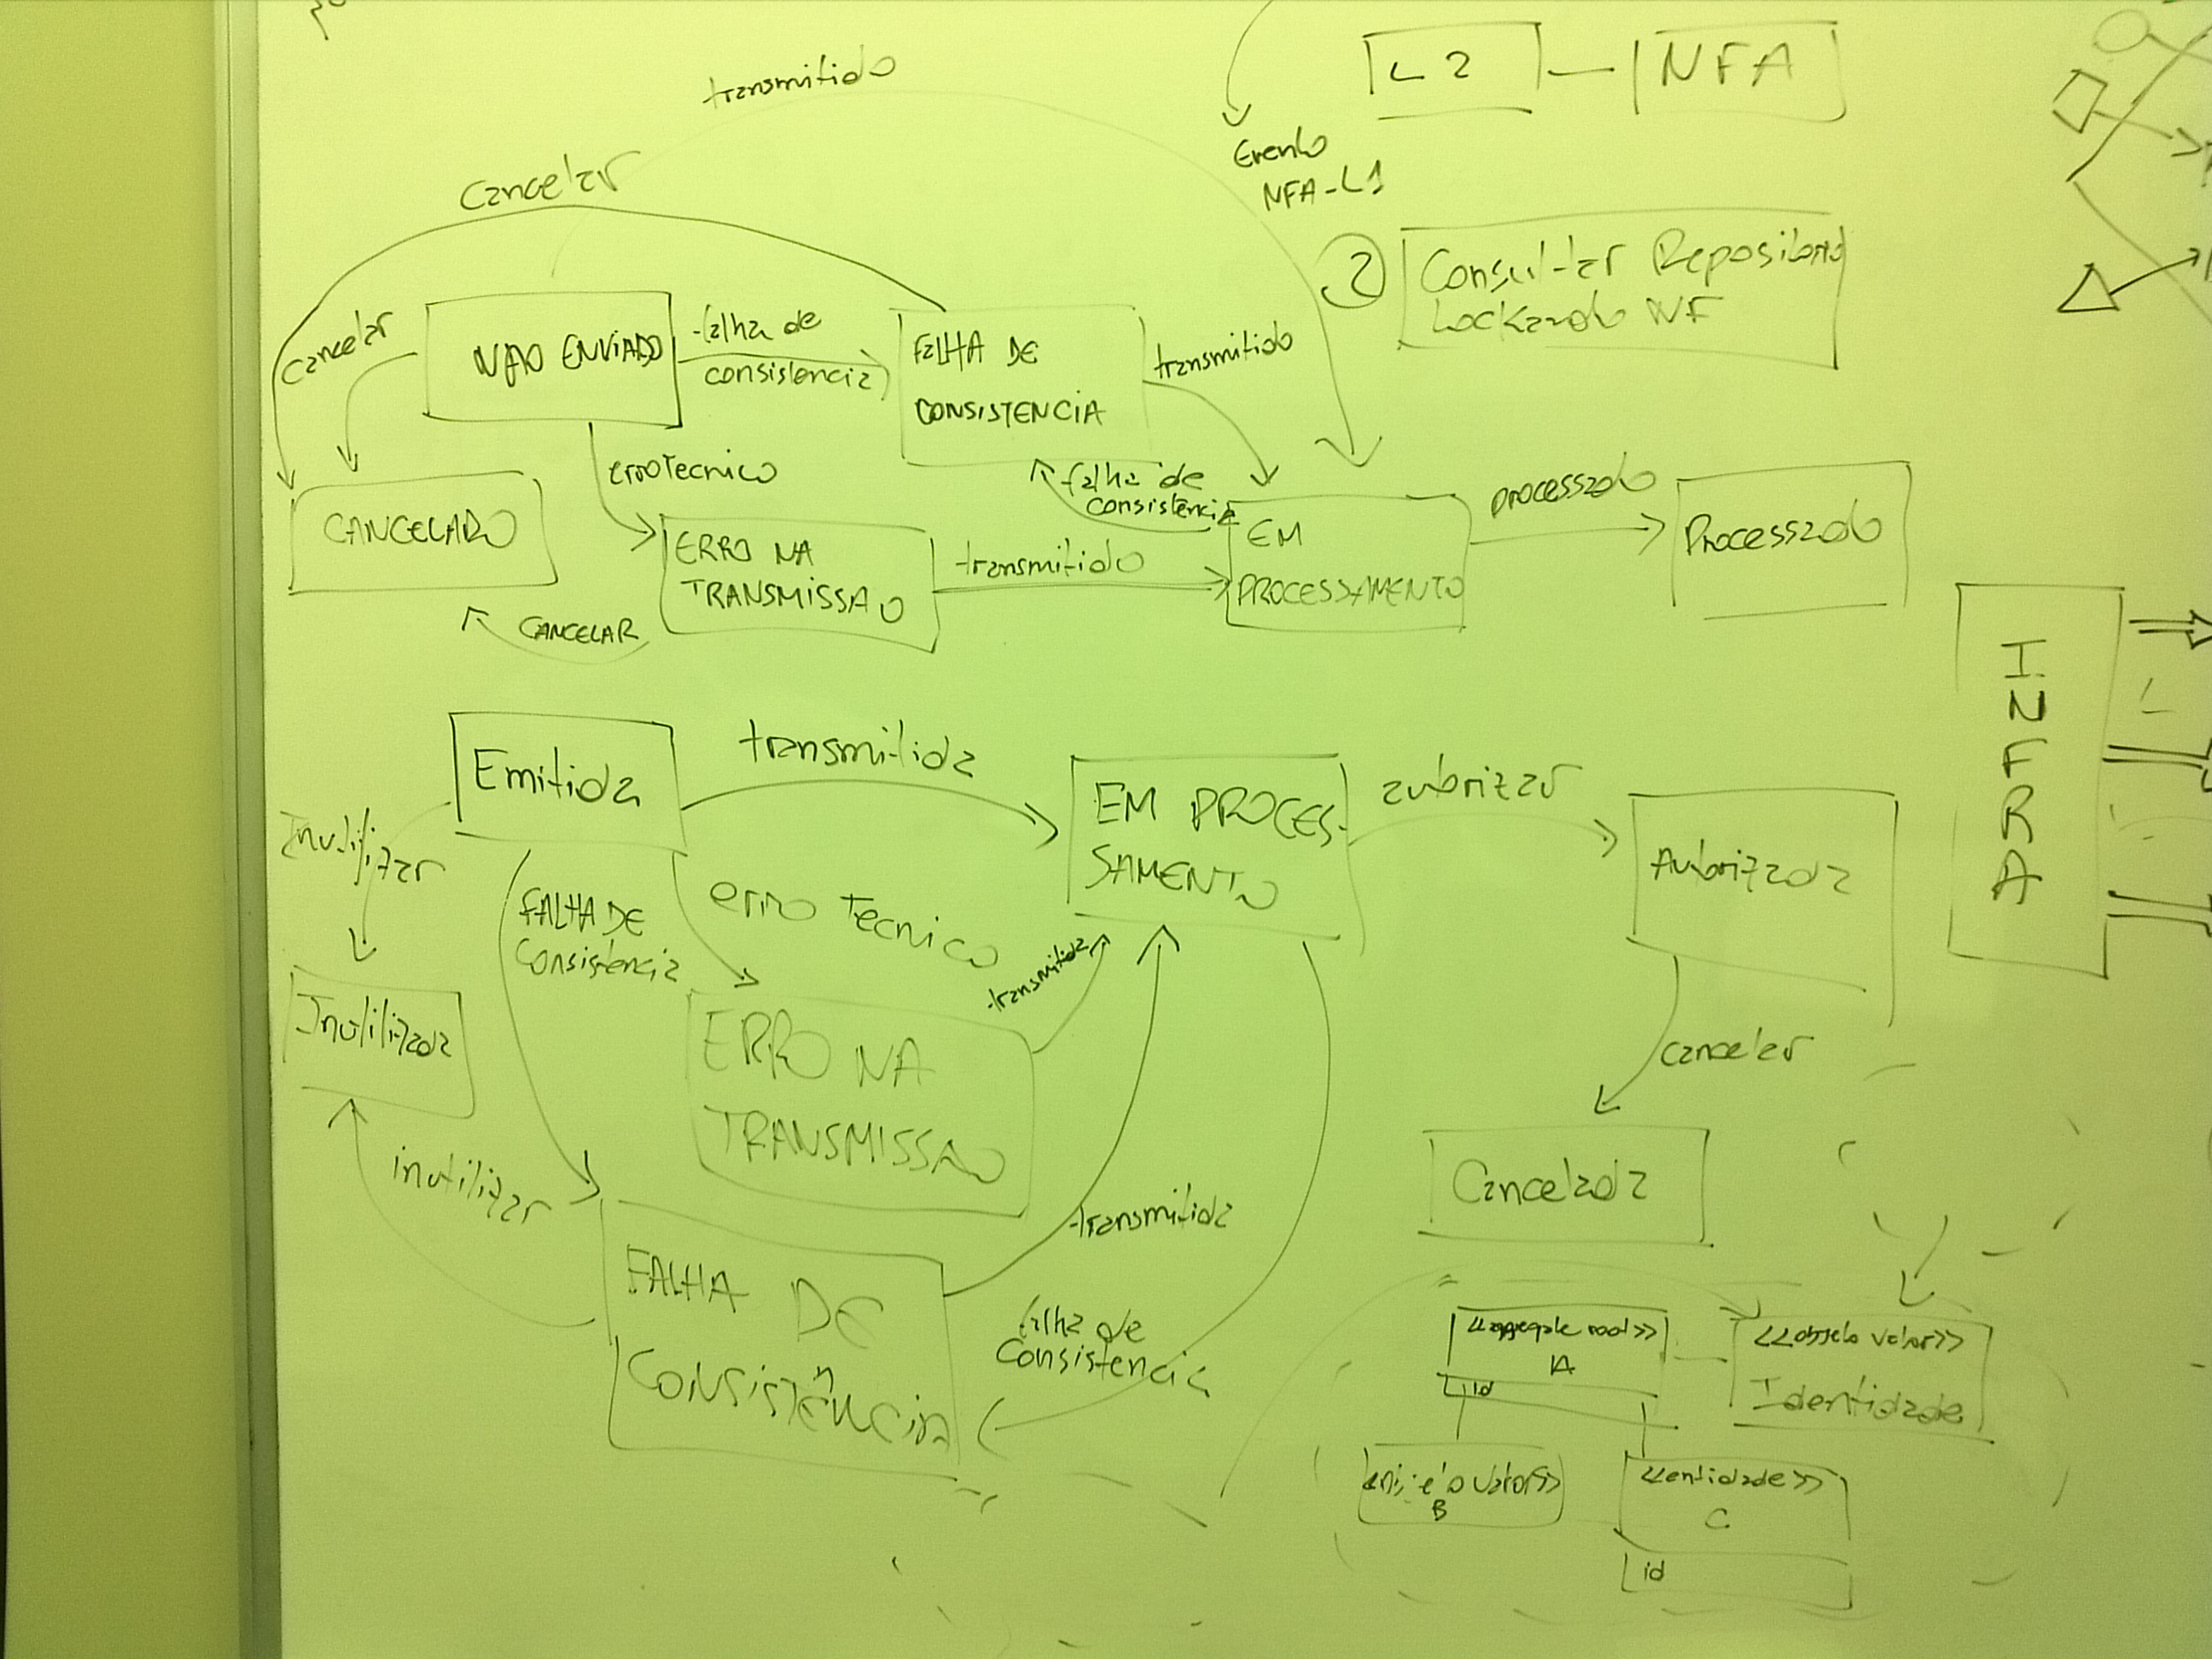 transmitido
L2
NFA
Cancelar
Evento
NFA-L1
2
Consultar Repositorio
Lockando NF
cancelar
NAO ENVIADO
falha de
consistencia
FALHA DE
CONSISTENCIA
transmitido
erro Tecnico
falha de
consistência
processado
CANCELADO
ERRO NA
TRANSMISSAO
transmitido
EM
PROCESSAMENTO
Processado
CANCELAR
INFRA
Emitida
transmitida
EM PROCES-
SAMENTO
autorizar
Autorizada
Inutilizar
FALHA DE
Consistencia
erro Tecnico
transmitida
Inutilizada
ERRO NA
TRANSMISSAO
cancelar
inutilizar
transmitida
Cancelada
FALHA DE
CONSISTÊNCIA
falha de
Consistencia
<<aggregate root>>
A
id
<<objeto valor>>
Identidade
B
<<entidade>>
C
id